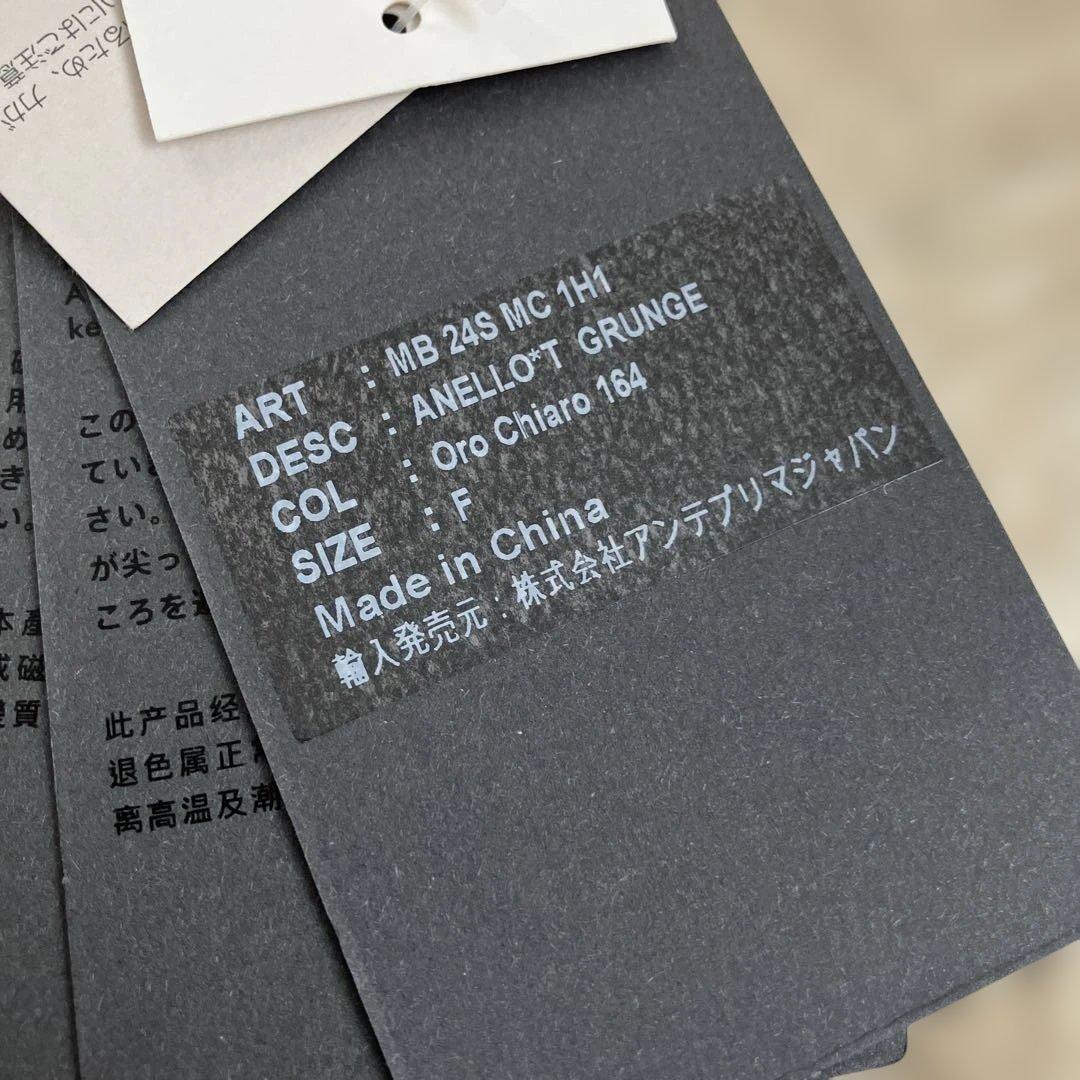 ART : MB 24S MC 1H1
DESC : ANELLO*T GRUNGE
COL : Oro Chiaro 164
SIZE : F
Made in China
輸入発売元：株式会社アンテプリマジャパン
るため、
にはご注意
力が
ke
この
てい
さい。
が尖っ
ころを
此产品经
退色属正
离高温及潮
用
め
き
い。
本產
成磁
質